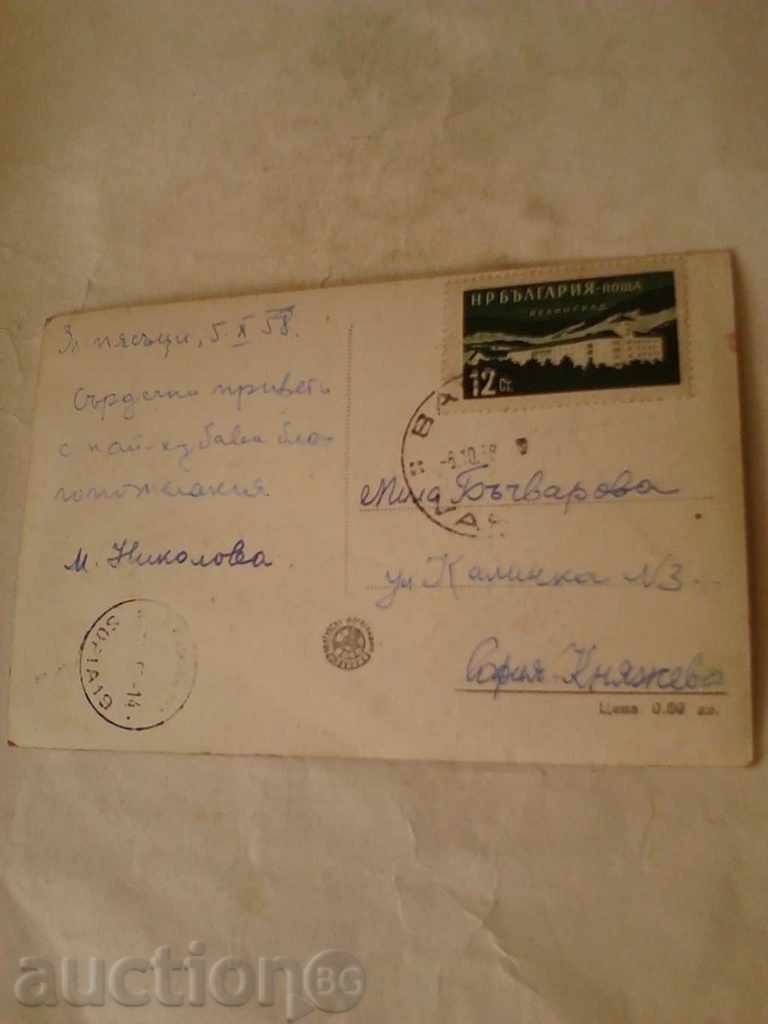 Зл. пясъци, 5.X.58.
Сърдечни привети
с най-хубави бла-
гопожелания.
М. Николова
НРБЪЛГАРИЯ-ПОЩА
ВЕЛИНГРАД
12 Ст.
-6.10.58
Мила Бъчварова
ул Калинка N3
София-Княжево
Цена 0.80 лв.
SOFIA 19
auctionBG